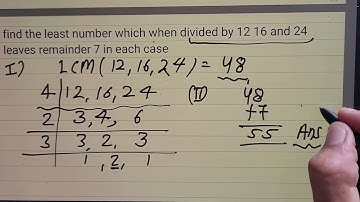 find the least number which when divided by 12 16 and 24
leaves remainder 7 in each case
I) LCM (12, 16, 24) = 48
4 | 12, 16, 24
2 | 3, 4, 6
3 | 3, 2, 3
1, 2, 1
(II) 48
+7
55 Ans